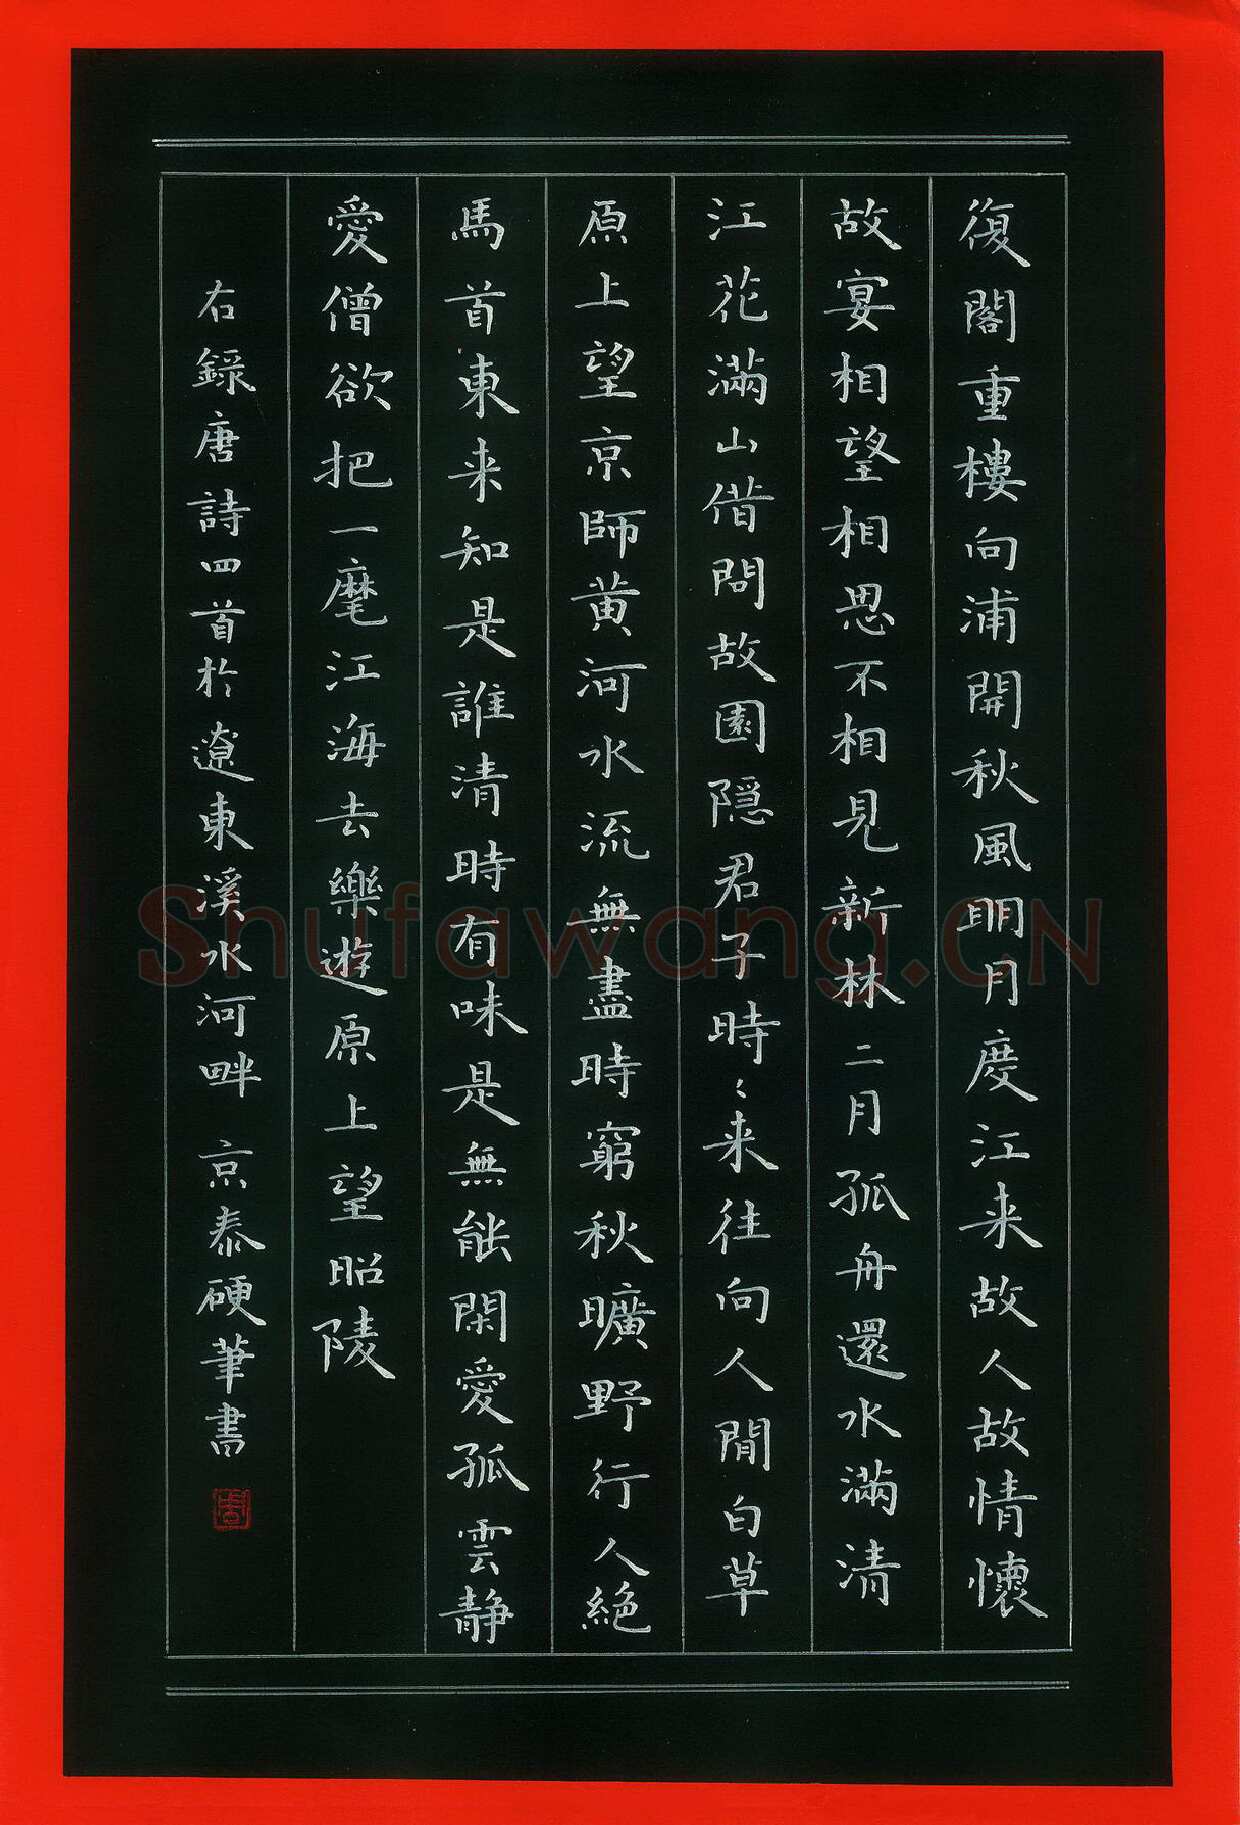 復閣重樓向浦開秋風明月度江来故人故情懷
故宴相望相思不相見新林二月孤舟還水滿清
江花滿山借問故園隱君子時〻来往向人間白草
原上望京師黄河水流無盡時窮秋曠野行人絕
馬首東来知是誰清時有味是無能閑愛孤雲静
愛僧欲把一麾江海去樂遊原上望昭陵
右録唐詩四首於遼東溪水河畔 京泰硬筆書
Shufawang.CN